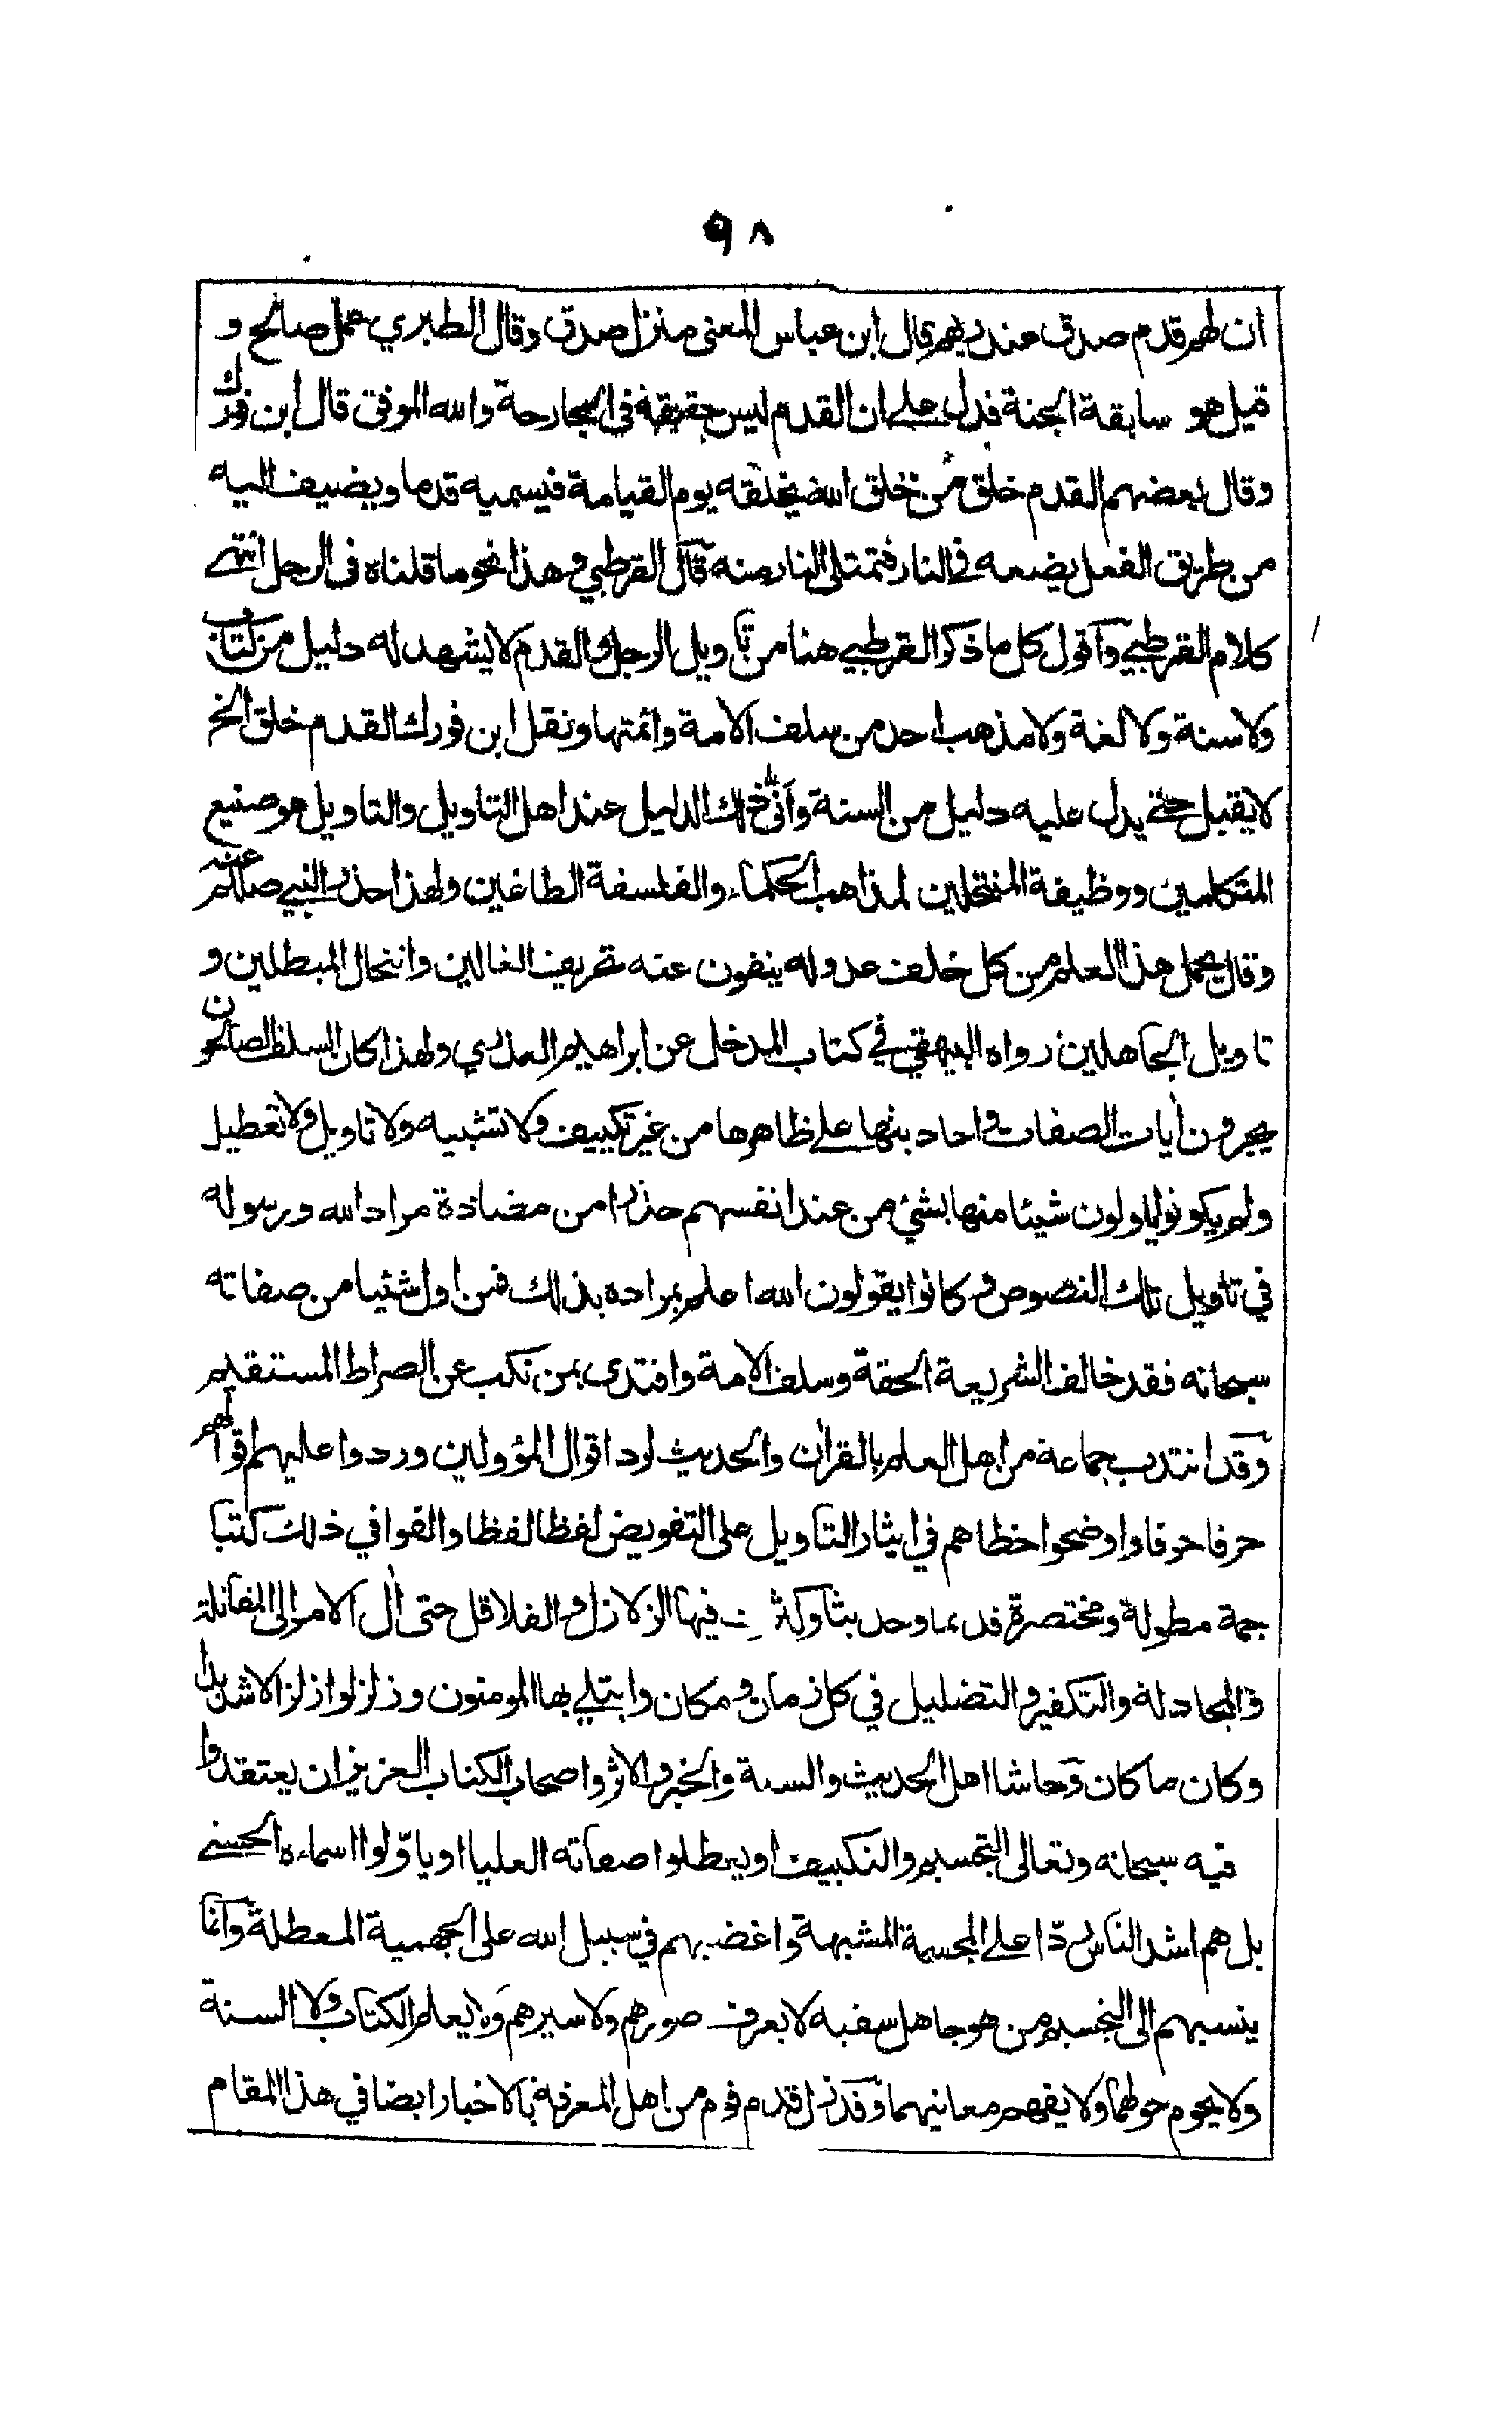 ٩٨
ان لهم قدم صدق عند ربهم قال ابن عباس المعنى منزل صدق وقال الطبري عمل صالح و
قيل هو سابقة الجنة فدل على ان القدم ليس حقيقة في الجارحة والله الموفق قال ابن فورك
وقال بعضهم القدم خلق من خلق الله يخلقه يوم القيامة فيسميه قدما ويضيف اليه
من طريق الفعل يضعه في النار فتمتلي النار منه قال القرطبي وهذا نحو ما قلناه في الرجل انتهى
كلام القرطبي وأقول كل ما ذكر القرطبي هنا من تأويل الرجل والقدم لا يشهد له دليل من كتاب
ولا سنة ولا لغة ولا مذهب احد من سلف الامة وائمتها ونقل ابن فورك القدم خلق الخ
لا يقبل حتى يدل عليه دليل من السنة وأنى ذلك الدليل عند اهل التاويل والتاويل هو صنيع
المتكلمين ووظيفة المنتحلين لمذاهب الحكماء والفلسفة الطاغين ولهذا حذر النبي صللم عنه
وقال يحمل هذا العلم من كل خلف عدوله ينفون عنه تحريف الغالين وانتحال المبطلين و
تاويل الجاهلين رواه البيهقي في كتاب المدخل عن ابراهيم العذري ولهذا كان السلف الصالحون
يجرون أيات الصفات واحاديثها على ظاهرها من غير تكييف ولا تشبيه ولا تاويل ولا تعطيل
ولم يكونوا ياولون شيئا منها بشئ من عند انفسهم حذرا من مضادة مراد الله ورسوله
في تاويل تلك النصوص وكانوا يقولون الله اعلم بمراده بذلك فمن اول شئيا من صفاته
سبحانه فقد خالف الشريعة الحقة وسلف الامة واقتدى بمن نكب عن الصراط المستقيم
وقد انتدب جماعة من اهل العلم بالقران والحديث لرد اقوال المؤولين وردوا عليهم اقوالهم
حرفا حرفا واوضحوا خطاهم في ايثار التاويل على التفويض لفظا لفظا والفوا في ذلك كتبا
جمة مطولة ومختصرة قديما وحديثا وكثرت فيها الزلازل والقلاقل حتى أل الامر الى المقاتلة
والمجادلة والتكفير والتضليل في كل زمان ومكان وابتلي بها المومنون وزلزلوا زلزالا شديدا
وكان ما كان وحاشا اهل الحديث والسنة والخبر والاثر واصحاب الكتاب العزيز ان يعتقدوا
فيه سبحانه وتعالى التجسيم والتكييف او يعطلوا صفاته العليا او ياولوا اسماءه الحسنى
بل هم اشد الناس ردا على المجسمة المشبهة واغضبهم في سبيل الله على الجهمية المعطلة وانما
ينسبهم الى التجسيم من هو جاهل سفيه لا يعرف صورهم ولا سيرهم ولا يعلم الكتاب ولا السنة
ولا يحوم حولهما ولا يفهم معانيهما وقد زل قدم قوم من اهل المعرفة بالاخبار ايضا في هذا المقام